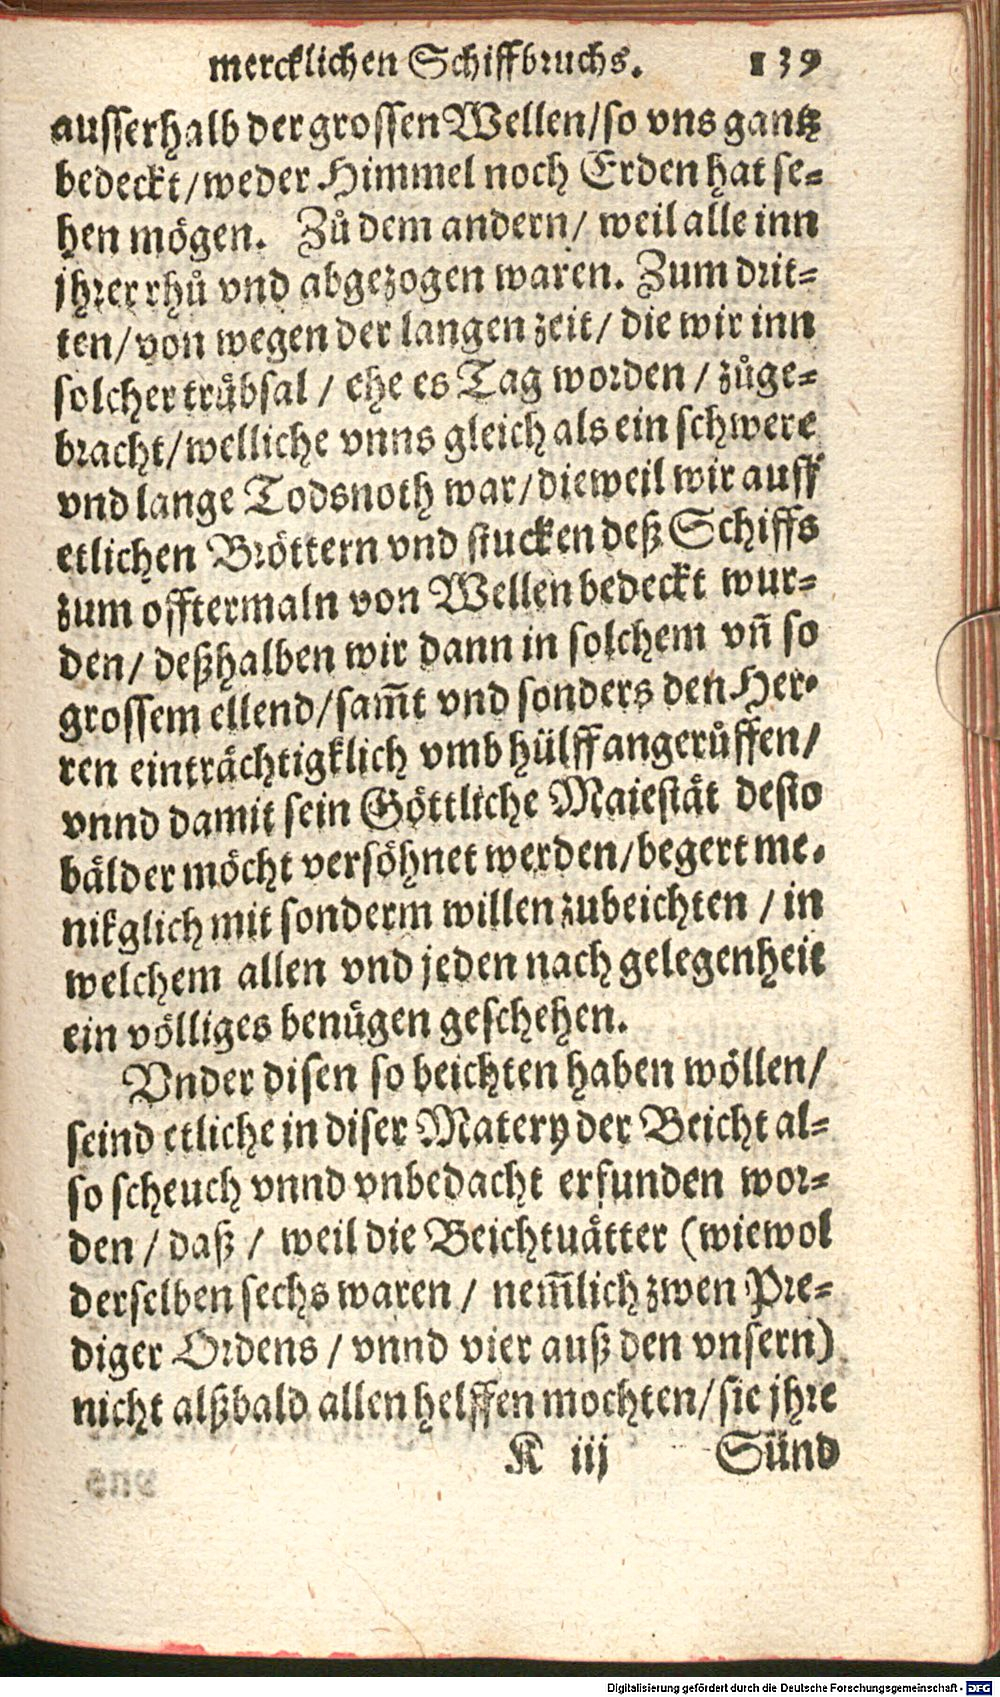 mercklichen Schiffbruchs. 139
ausserhalb der grossen Wellen/so vns gantz
bedeckt/weder Himmel noch Erden hat se-
hen mögen. Zů dem andern/ weil alle inn
jhrer rhů vnd abgezogen waren. Zum drit-
ten/von wegen der langen zeit/ die wir inn
solcher trůbsal / ehe es Tag worden / zůge-
bracht/welliche vnns gleich als ein schwere
vnd lange Todsnoth war/dieweil wir auff
etlichen Bröttern vnd stucken deß Schiffs
zum offtermaln von Wellen bedeckt wur-
den/ deßhalben wir dann in solchem vñ so
grossem ellend/sam̃t vnd sonders den Her-
ren einträchtigklich vmb hülff angerůffen/
vnnd damit sein Göttliche Maiestät desto
bälder möcht versöhnet werden/begert me-
nikglich mit sonderm willen zubeichten / in
welchem allen vnd jeden nach gelegenheit
ein völliges benůgen geschehen.
Vnder disen so beichten haben wöllen/
seind etliche in diser Matery der Beicht al-
so scheuch vnnd vnbedacht erfunden wor-
den / daß / weil die Beichtuätter (wiewol
derselben sechs waren / nem̃lich zwen Pre-
diger Ordens / vnnd vier auß den vnsern)
nicht alßbald allen helffen mochten/sie jhre
K iij Sünd
Digitalisierung gefördert durch die Deutsche Forschungsgemeinschaft - DFG